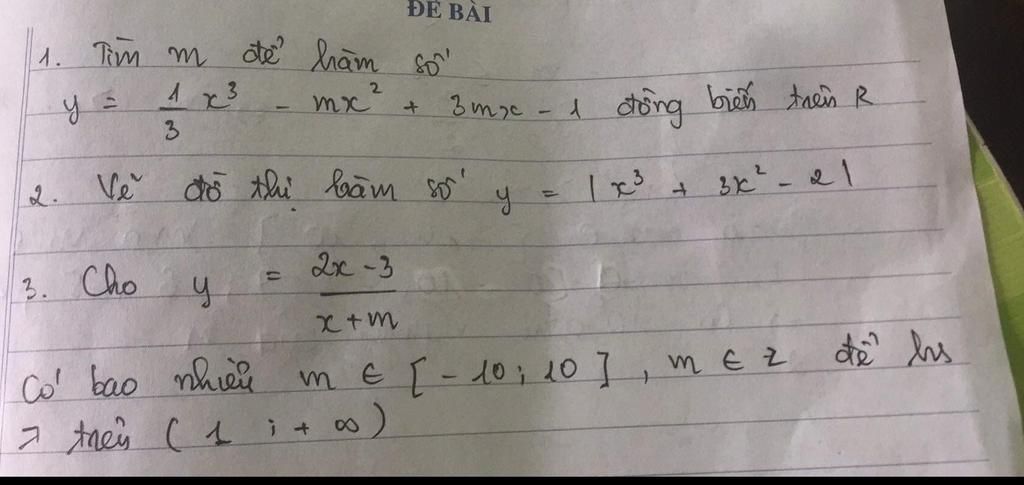 ĐỀ BÀI
1. Tìm m để hàm số
y = 1/3 x³ - mx² + 3mx - 1 đồng biến trên R
2. Vẽ đồ thị hàm số y = |x³ + 3x² - 2|
3. Cho y = (2x - 3)/(x + m)
Có bao nhiêu m ∈ [-10; 10], m ∈ Z để hs
↗ trên (1; +∞)